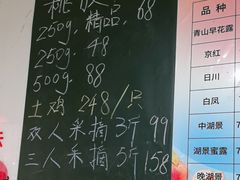 桃胶
250g. 精品 68
250g. 48
500g. 88
土鸡 248/只
双人采摘 3斤 99
三人采摘 5斤 158
品种
青山早花露
京红
日川
白凤
中湖景
湖景蜜露
晚湖景